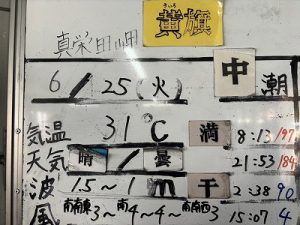 きいろ
黄旗
真栄田岬
6/25(火) 中潮
気温 31℃ 満 8:13/197
天気 晴/曇 21:53/184
波 1.5~1m 干 2:38 90
風 南南東3~南4~4~南南西3 15:07 4